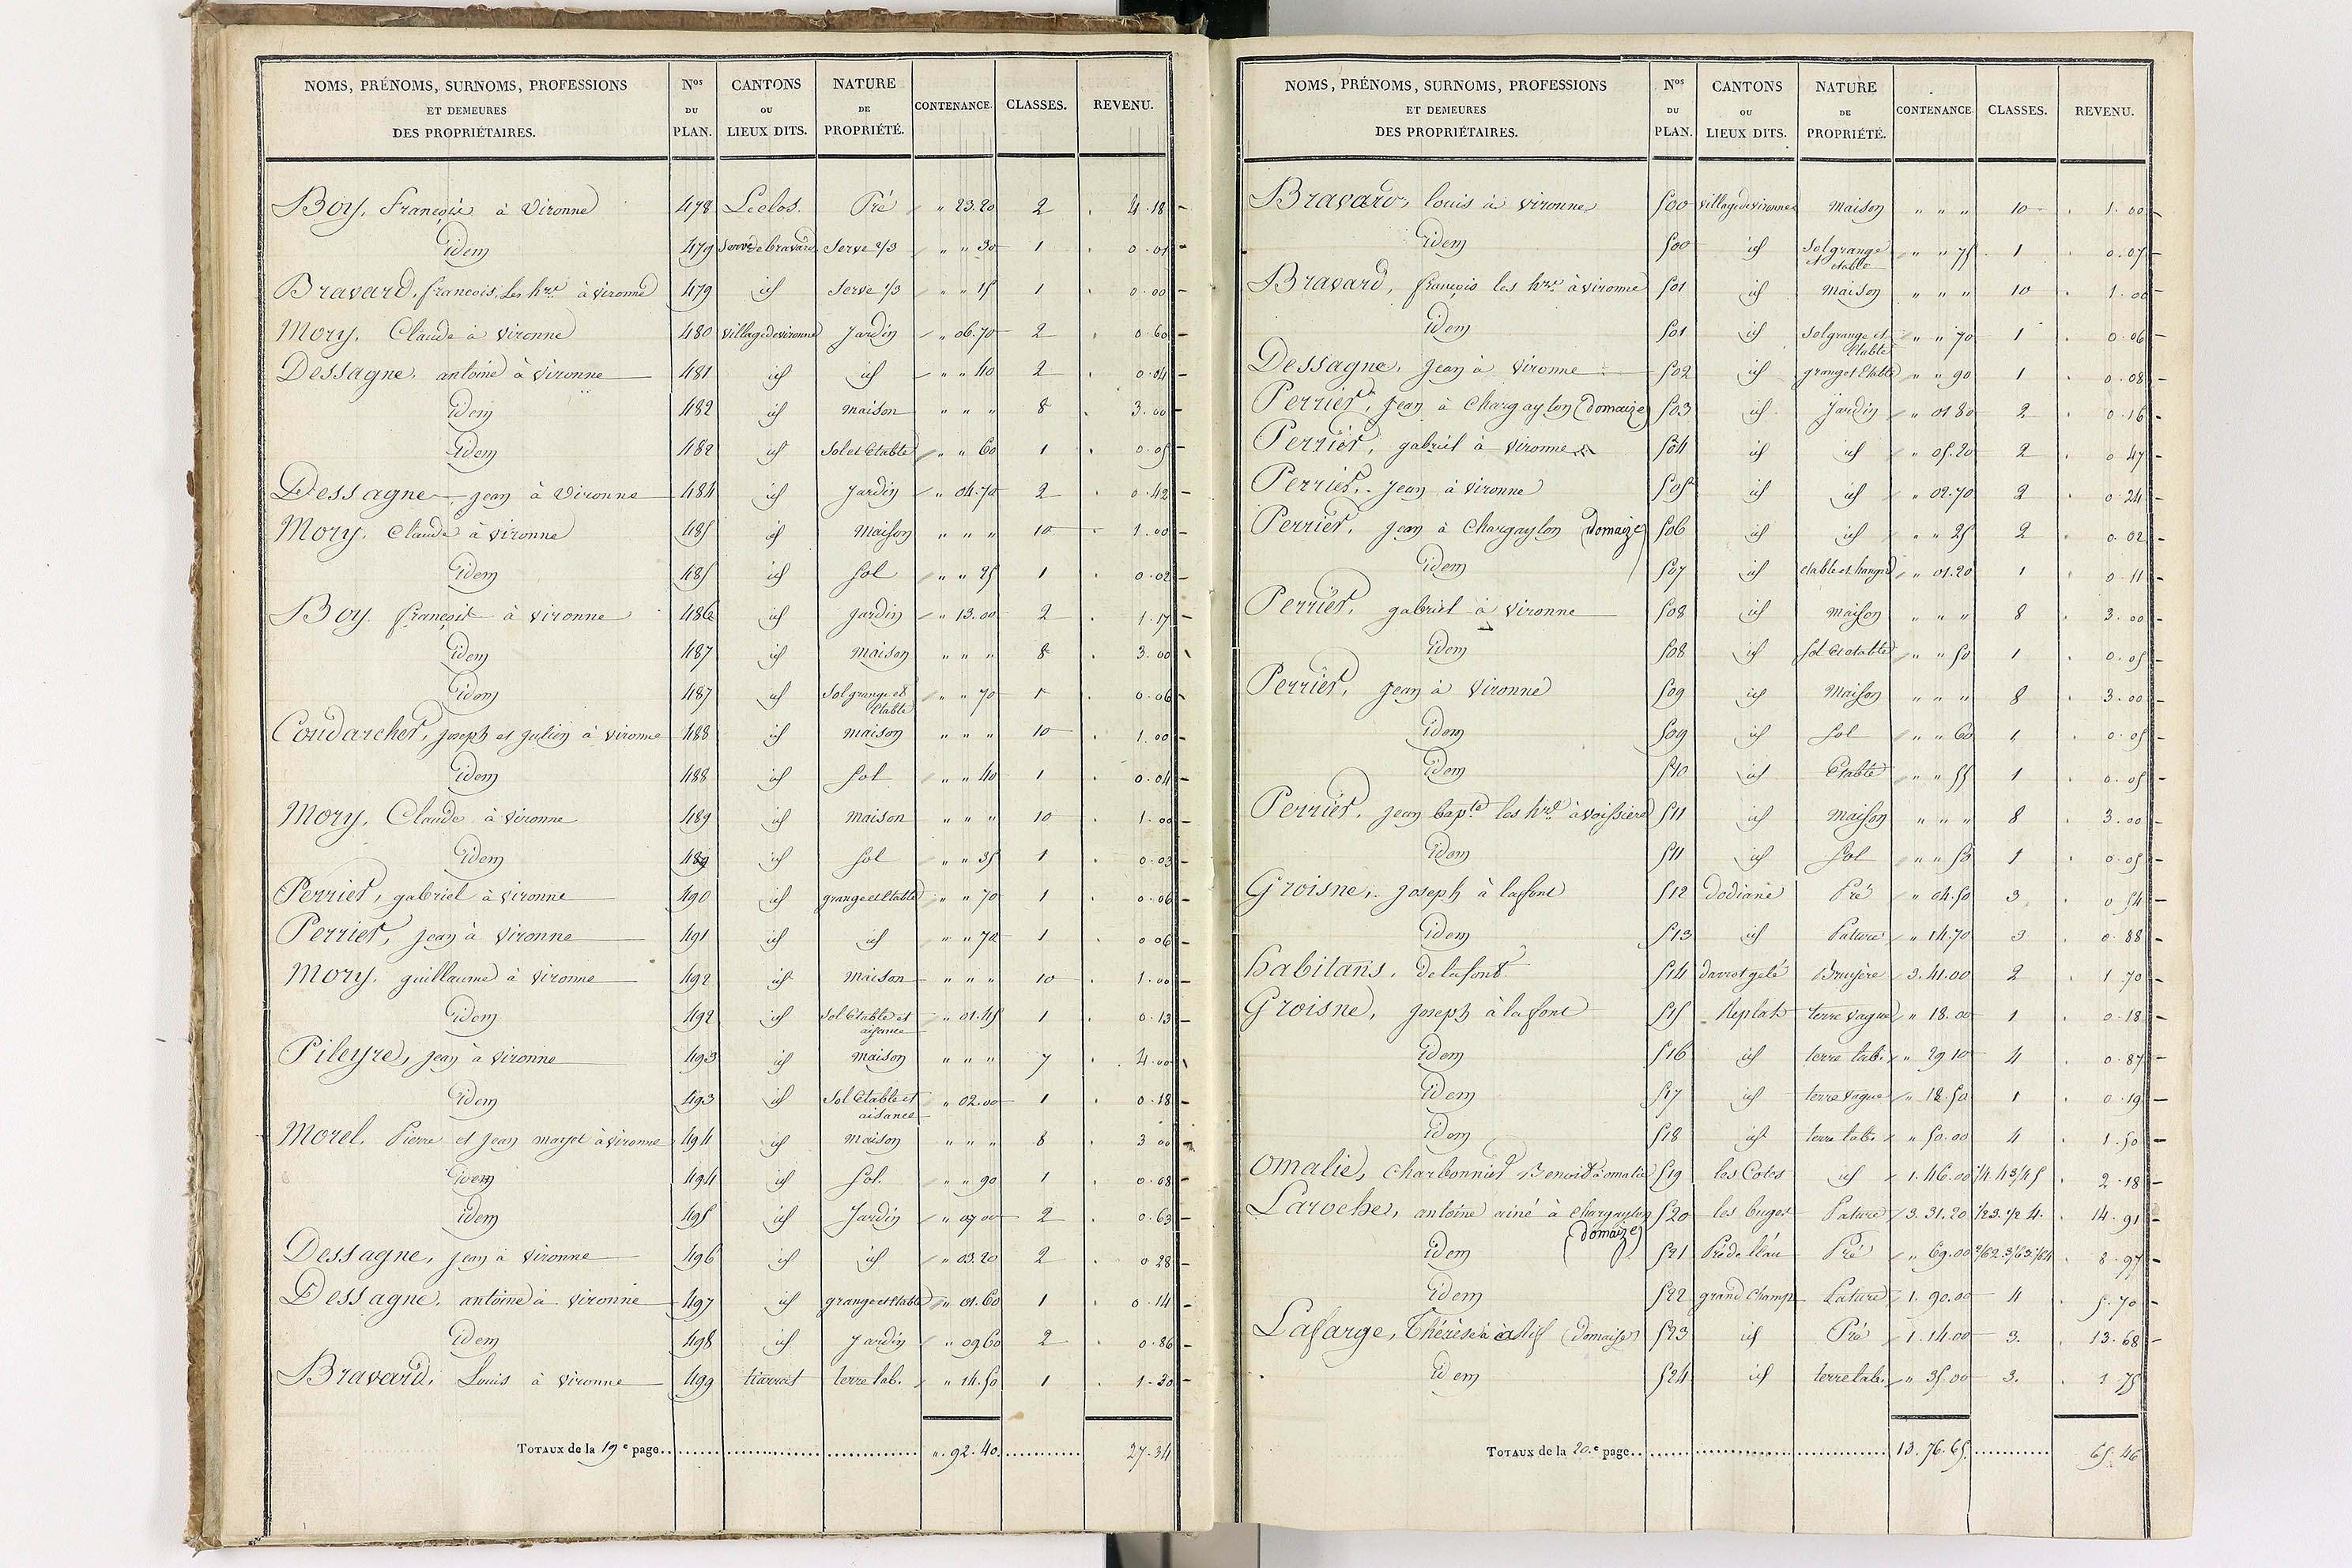 NOMS, PRÉNOMS, SURNOMS, PROFESSIONS ET DEMEURES DES PROPRIÉTAIRES. Nos DU PLAN. CANTONS OU LIEUX DITS. NATURE DE PROPRIÉTÉ. CONTENANCE. CLASSES. REVENU.
Boy, François à Vironne 478 Leclos. Pré " 23.20 2 4.18
Idem 479 Serve de bravard Serve 2/3 " " 30 1 0.01
Bravard, françois, les hrs à vironne 479 id Serve 1/3 " " 15 1 0.00
Mory, Claude à vironne 480 village de vironne Jardin " 06.70 2 0.60
Dessagne, antoine à Vironne 481 id id " " 40 2 0.04
Idem 482 id maison " " " 8 3.00
Idem 482 id Sol et Etable " " 60 1 0.05
Dessagne, jean à Vironne 484 id Jardin " 04.70 2 0.42
Mory, Claude à vironne 485 id Maison " " " 10 1.00
Idem 485 id Sol " " 25 1 0.02
Boy françois à vironne 486 id Jardin " 13.00 2 1.17
Idem 487 id Maison " " " 8 3.00
Idem 487 id Sol grange et Etable " " 70 1 0.06
Coudarcher, joseph et julien à vironne 488 id maison " " " 10 1.00
Idem 488 id Sol " " 40 1 0.04
Mory, Claude à vironne 489 id maison " " " 10 1.00
Idem 489 id Sol " " 35 1 0.03
Perrier, gabriel à vironne 490 id grange et Etable " " 70 1 0.06
Perrier, jean à vironne 491 id id " " 70 1 0.06
Mory, guillaume à vironne 492 id maison " " " 10 1.00
Idem 492 id Sol Etable et aisance " 01.45 1 0.13
Pileyre, jean à vironne 493 id maison " " " 7 4.00
Idem 493 id Sol Etable et aisance " 02.00 1 0.18
Morel, Pierre et jean mayet à vironne 494 id maison " " " 8 3 00
Idem 494 id Sol. " " 90 1 0.08
Idem 495 id Jardin " 07 00 2 0.63
Dessagne, jean à vironne 496 id id " 03.20 2 0 28
Dessagne, antoine à vironne 497 id grange et Etable " 01.60 1 0.14
Idem 498 id Jardin " 09 60 2 0.86
Bravard, Louis à vironne 499 terre lab. " 14.50 1 1.30
TOTAUX de la 19e page ". 92.40 27.34
NOMS, PRÉNOMS, SURNOMS, PROFESSIONS ET DEMEURES DES PROPRIÉTAIRES. Nos DU PLAN. CANTONS OU LIEUX DITS. NATURE DE PROPRIÉTÉ. CONTENANCE. CLASSES. REVENU.
Bravard, louis à vironne 500 village de vironne Maison " " " 10 1.00
Idem 500 id Sol grange et etable " " 75 1 0.07
Bravard, françois les hrs à vironne 501 id Maison " " " 10 1.00
Idem 501 id Sol grange et Etable " " 70 1 0.06
Dessagne, jean à vironne 502 id grange et Etable " " 90 1 0.08
Perrier, jean à Chargaylon (domaize) 503 id Jardin " 01 80 2 0.16
Perrier, gabriel à vironne 504 id id " 05.20 2 0 47
Perrier, jean à vironne 505 id id " 02.70 2 0.24
Perrier, jean à Chargaylon (domaize) 506 id id " " 25 2 0.02
Idem 507 id etable et hangard " 01.20 1 0.11
Perrier, gabriel à vironne 508 id Maison " " " 8 3.00
Idem 508 id Sol et etable " " 50 1 0.05
Perrier, jean à vironne 509 id Maison " " " 8 3.00
Idem 509 id Sol " " 60 1 0.05
Idem 510 id Etable " " 55 1 0.05
Perrier, jean bapte les hrs à voissière 511 id Maison " " " 8 3.00
Idem 511 id Sol " " 50 1 0.05
Groisne, joseph à lafont 512 dodiane Pré " 04.50 3 0 54
Idem 513 id Pature " 14.70 3 0.88
habitans, de lafont 514 Bruyère 3.41.00 2 1 70
Groisne, joseph à lafont 515 Replat terre vague " 18.00 1 0.18
Idem 516 id terre lab. " 29 10 4 0.87
Idem 517 id terre vague " 18.50 1 0.19
Idem 518 id terre lab. " 50.00 4 1.50
Omalie, charbonnier Benoit à omalie 519 les Cotes id 1.46.00 2.18
Laroche, antoine ainé à chargaylon (domaize) 520 les buges Pature 3.31.20 1/2 3. 1/2 4. 14.91
Idem 521 Pré de l'eau Pré " 69.00 8.97
Idem 522 grand Champ Pature 1.90.00 4 5.70
Lafarge, Thérèse à (domaise) 523 id Pré 1.14.00 3. 13.68
Idem 524 id terre lab. " 35.00 3. 1.75
TOTAUX de la 20.e page 13.76.65. 65.46